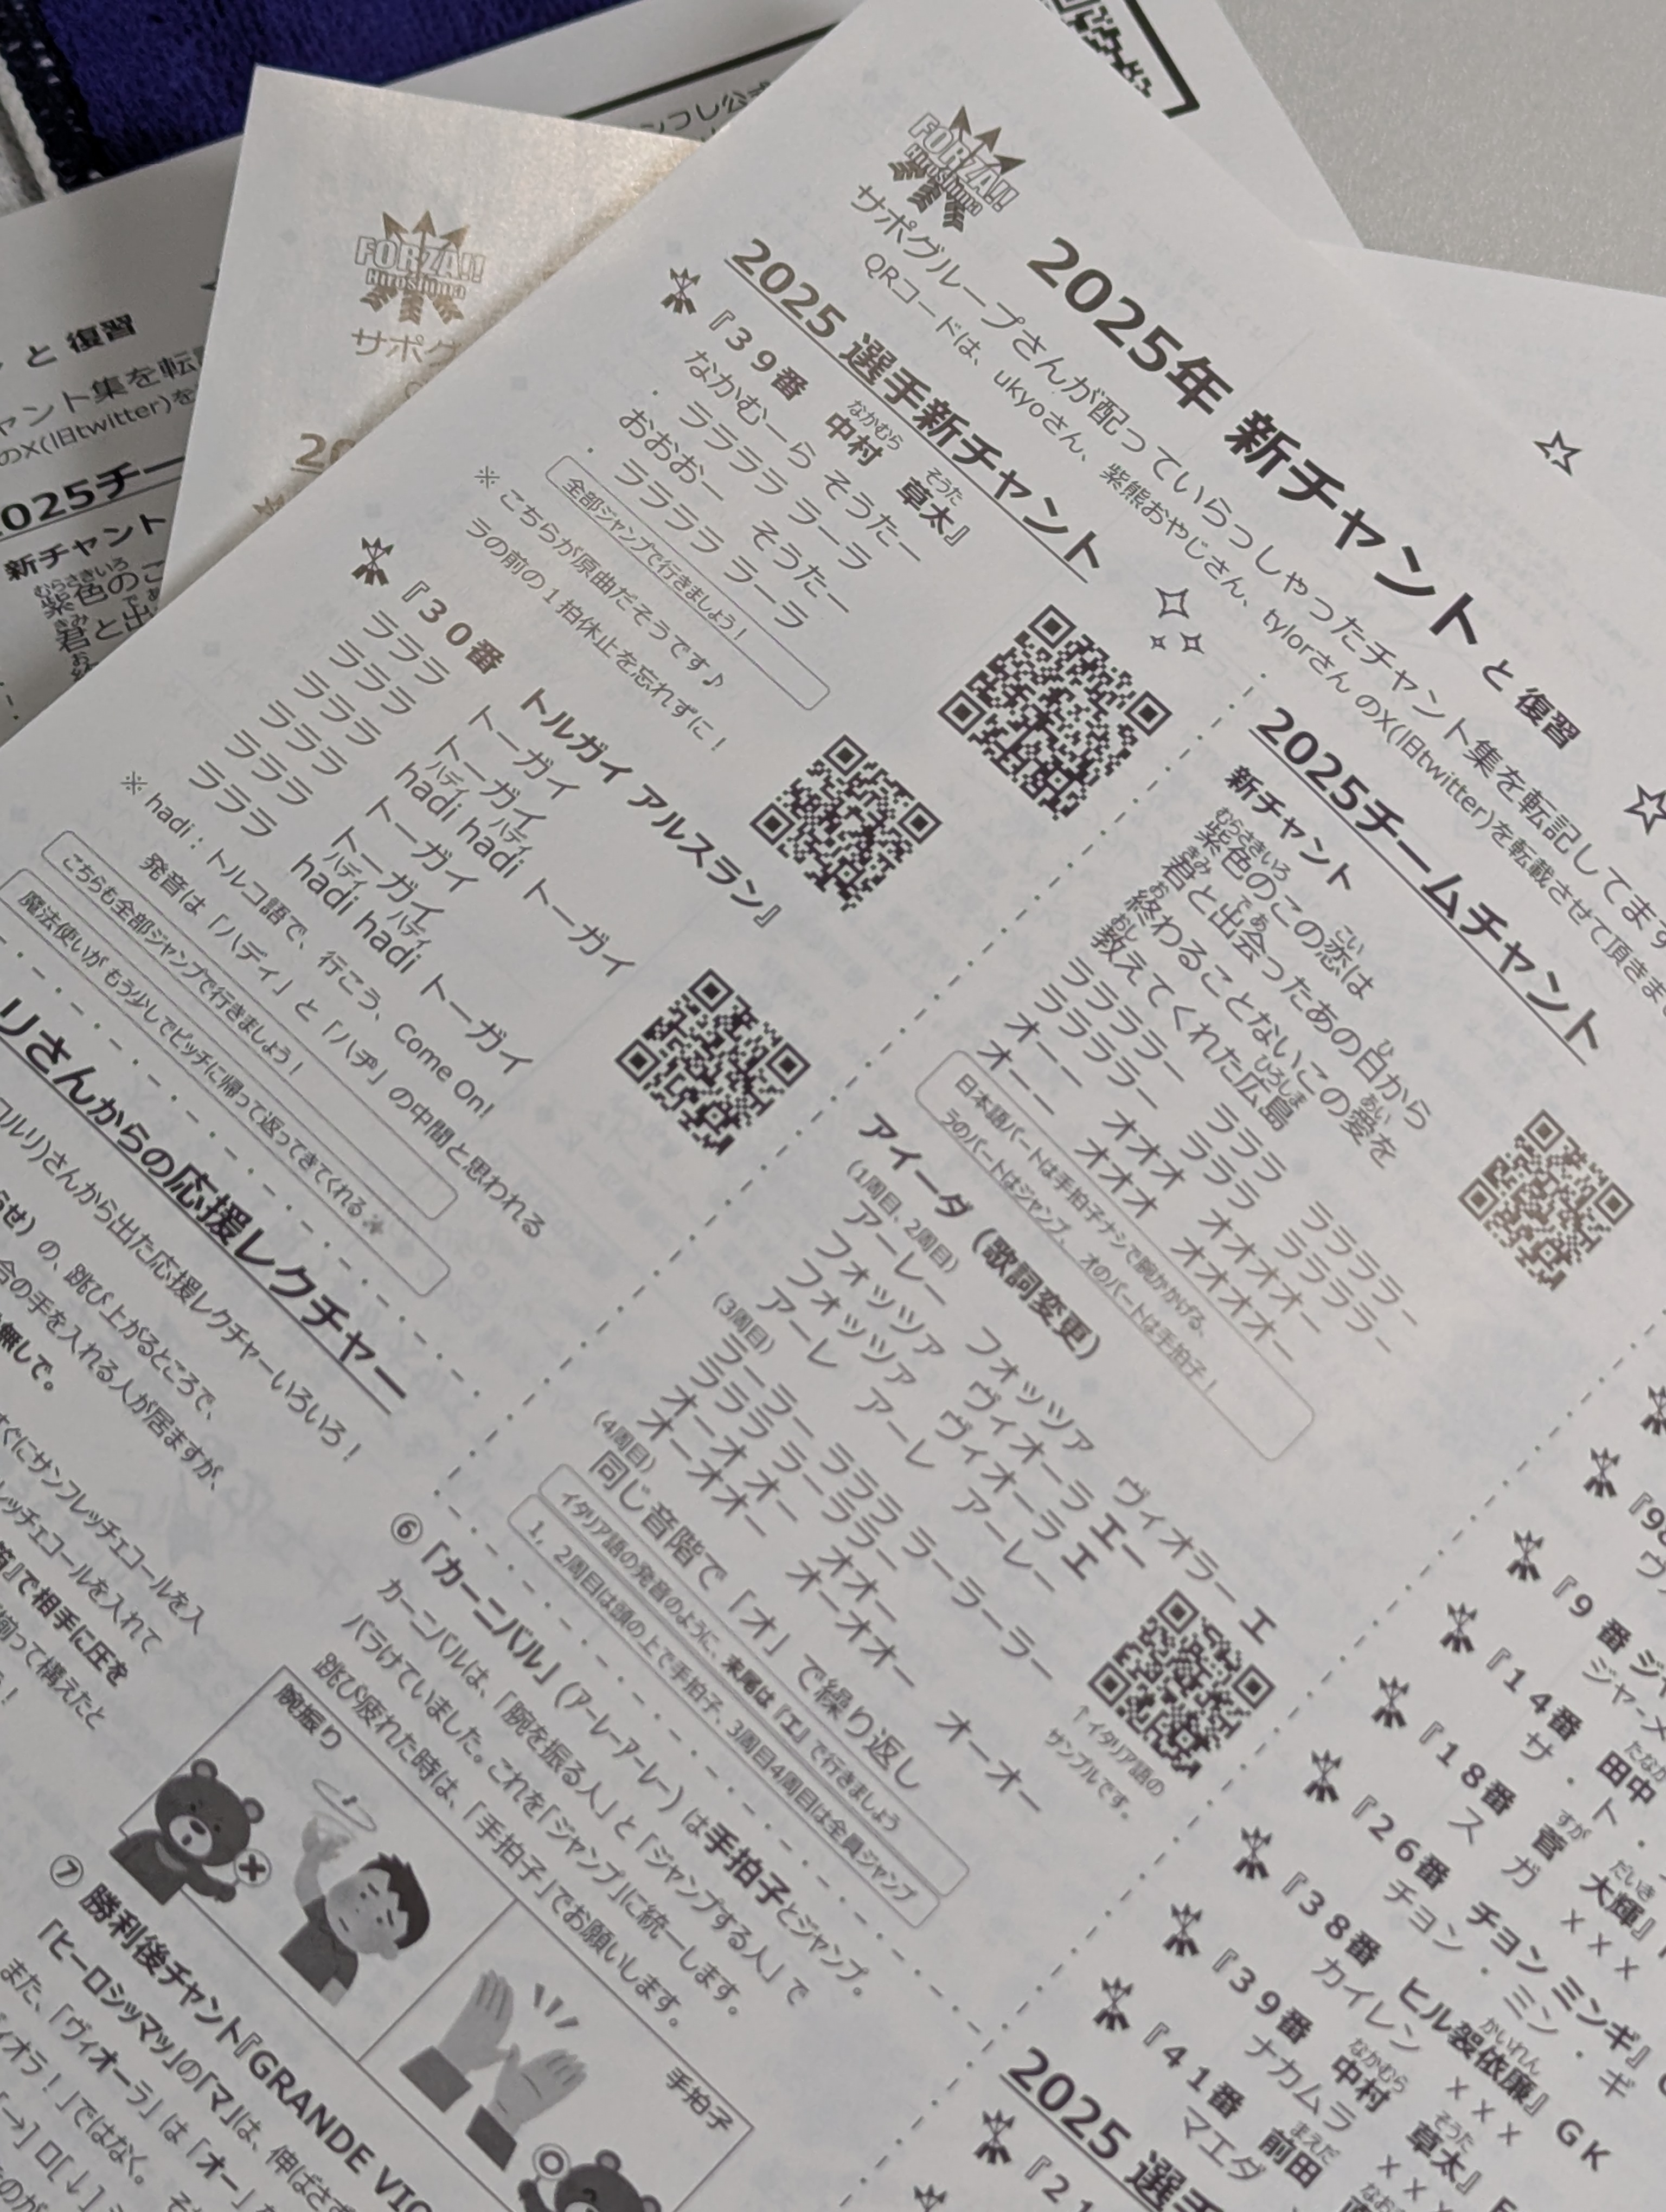 FORZA!!
Hiroshima
2025年 新チャント と 復習
サポグループさんが配っていらっしゃったチャント集を転記してます
QRコードは、ukyoさん、紫熊おやじさん、tylorさん のX(旧twitter)を転載させて頂きま
2025 選手新チャント
『39番 中村 草太』
なかむら そうた
なかむーら そうたー
・ ララララ ラーラ
おおおー そうたー
・ ララララ ラーラ
全部ジャンプで行きましょう!
※ こちらが原曲だそうです♪
ラの前の1拍休止を忘れずに!
『30番 トルガイ アルスラン』
ラララ トーガイ
ラララ トーガイ
ラララ hadi hadi トーガイ
ハディ ハディ
ラララ トーガイ
ラララ トーガイ
ラララ hadi hadi トーガイ
ハディ ハディ
※ hadi:トルコ語で、行こう、Come On!
発音は「ハディ」と「ハヂ」の中間と思われる
こちらも全部ジャンプで行きましょう!
魔法使いが もう少しでピッチに帰って返ってきてくれる
2025チームチャント
新チャント
紫色のこの恋は
むらさきいろ こい
君と出会ったあの日から
きみ であ ひ
終わることないこの愛を
お あい
教えてくれた広島
おし ひろしま
ララララー ラララ ララララー
ララララー ラララ ララララー
オーー オオオ オオオオー
オーー オオオ オオオオー
日本語パートは手拍子ナシで腕かかげる、
ラのパートはジャンプ、オのパートは手拍子!
アイーダ(歌詞変更)
(1周目、2周目)
アーレー フォッツァ ヴィオラー エ
フォッツァ ヴィオーラ エー
フォッツァ ヴィオーラ エ
アーレ アーレ アーレー
(3周目)
ラーラー ラララ ラーラーラー
ラララ ラーララー
オーオ オー オオー
オーオオー オーオオー オーオー
(4周目)
同じ音階で「オ」で繰り返し
イタリア語の発音のように、末尾は『エ』で行きましょう
1, 2周目は頭の上で手拍子、3周目4周目は全員ジャンプ
↑イタリア語の
サンプルです。
リさんからの応援レクチャー
コルリ)さんから出た応援レクチャーいろいろ!
の、跳び上がるところで、
合の手を入れる人が居ますが、
無しで。
すぐにサンフレッチェコールを入
レッチェコールを入れて
』で相手に圧を
揃って構えたと
⑥「カーニバル」(アーレーアーレー)は手拍子とジャンプ。
カーニバルは、「腕を振る人」と「ジャンプする人」で
バラけていました。これを「ジャンプ」に統一します。
跳び疲れた時は、「手拍子」でお願いします。
腕振り
手拍子
⑦ 勝利後チャント『GRANDE VIO
「ヒーロシッマッ」の「マ」は、伸ばさず
また、「ヴィオーラ」は「オー」
ィオラ!」ではなく。
『9 番 ジャ
ジャーメ
『14番 田中
たなか
サ・ト・
『18番 菅 大輝』
すが だいき
ス ガ ×××
『26番 チョン ミンギ』
チョン・ミン・ギ
『38番 ヒル袈依廉』 GK
かいれん
カイレン ×××
『39番 中村 草太』
なかむら そうた
ナカムラ ××
『41番 前田
まえだ
マエダ
2025 選手
『21
FORZA!!
Hiroshima
サポグ
と 復習
ャント集を転
のX(旧twitter)を
2025チー
新チャント
紫色のこ
むらさきいろ
君と出
きみ